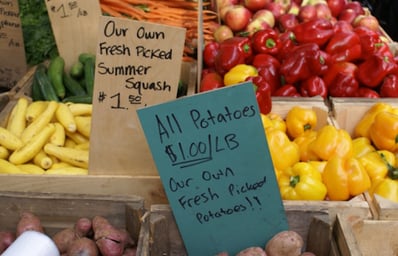 Our Own
Fresh Picked
Summer
Squash
$1.50
All Potatoes
$1.00/LB
Our Own
Fresh Picked
Potatoes!!